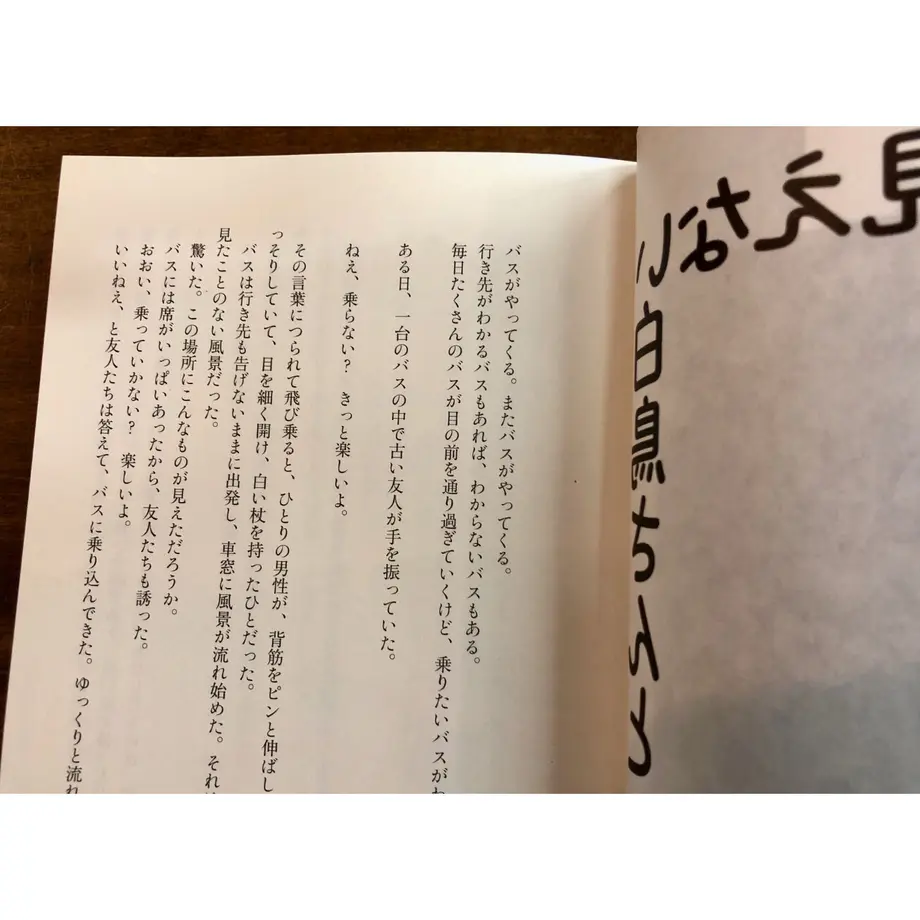 見えない
白鳥さんと
バスがやってくる。またバスがやってくる。
行き先がわかるバスもあれば、わからないバスもある。
毎日たくさんのバスが目の前を通り過ぎていくけど、乗りたいバスがわ
ある日、一台のバスの中で古い友人が手を振っていた。
ねえ、乗らない？　きっと楽しいよ。
その言葉につられて飛び乗ると、ひとりの男性が、背筋をピンと伸ばし
っそりしていて、目を細く開け、白い杖を持ったひとだった。
バスは行き先も告げないままに出発し、車窓に風景が流れ始めた。それ
見たことのない風景だった。
驚いた。この場所にこんなものが見えただろうか。
バスには席がいっぱいあったから、友人たちも誘った。
おおい、乗っていかない？　楽しいよ。
いいねえ、と友人たちは答えて、バスに乗り込んできた。ゆっくりと流れ